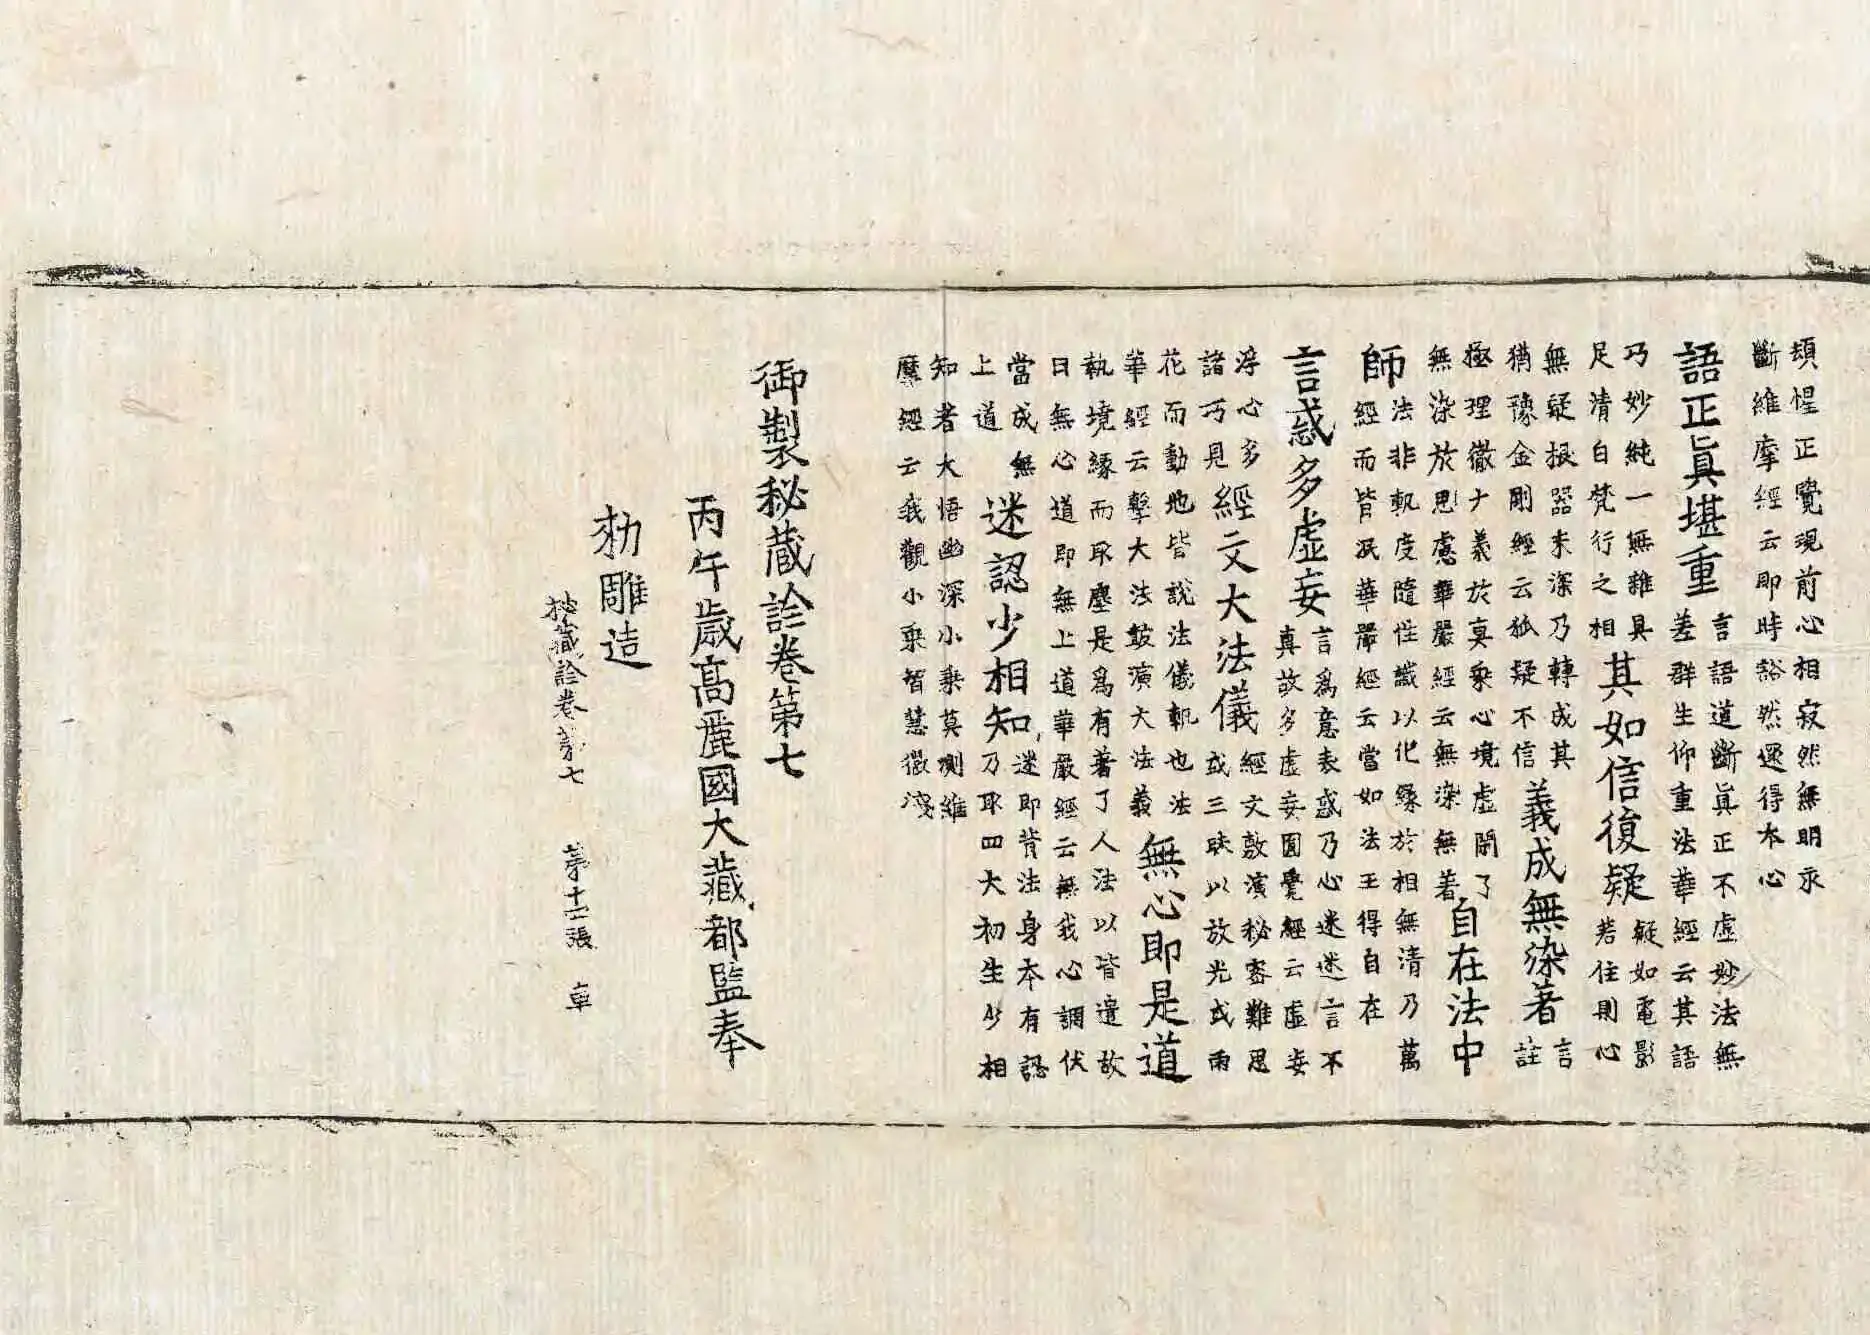 頓惺正覺現前心相寂然無明永
斷維摩經云即時豁然還得本心
語正眞堪重
言語道斷眞正不虛妙法無
差群生仰重法華經云其語
巧妙純一無雜具
足清白梵行之相
其如信復疑
疑如電影
若住則心
無疑根器未深乃轉成其
猶豫金剛經云狐疑不信
義成無染著
言
詮
極理徹十義於眞乘心境虛閑了
無染於思慮華嚴經云無染無著
自在法中
師
法非軌度隨性識以化緣於相無清乃萬
經而皆泯華嚴經云當如法王得自在
言惑多虛妄
言爲意表惑乃心迷迷言不
真故多虛妄圓覺經云虛妄
浮心多
諸巧見
經文大法儀
經文敷演秘密難思
或三昧以放光或雨
花而動地皆說法儀軌也法
華經云擊大法鼓演大法義
無心即是道
執境緣而取塵是爲有著了人法以皆遣故
曰無心道即無上道華嚴經云無我心調伏
當成無
上道
迷認少相知
迷即背法身本有認
乃取四大初生少相
知者大悟幽深小乘莫測維
摩經云我觀小乘智慧微淺
御製秘藏詮卷第七
丙午歲高麗國大藏都監奉
勑雕造
秘藏詮卷苐七 苐十二張 車